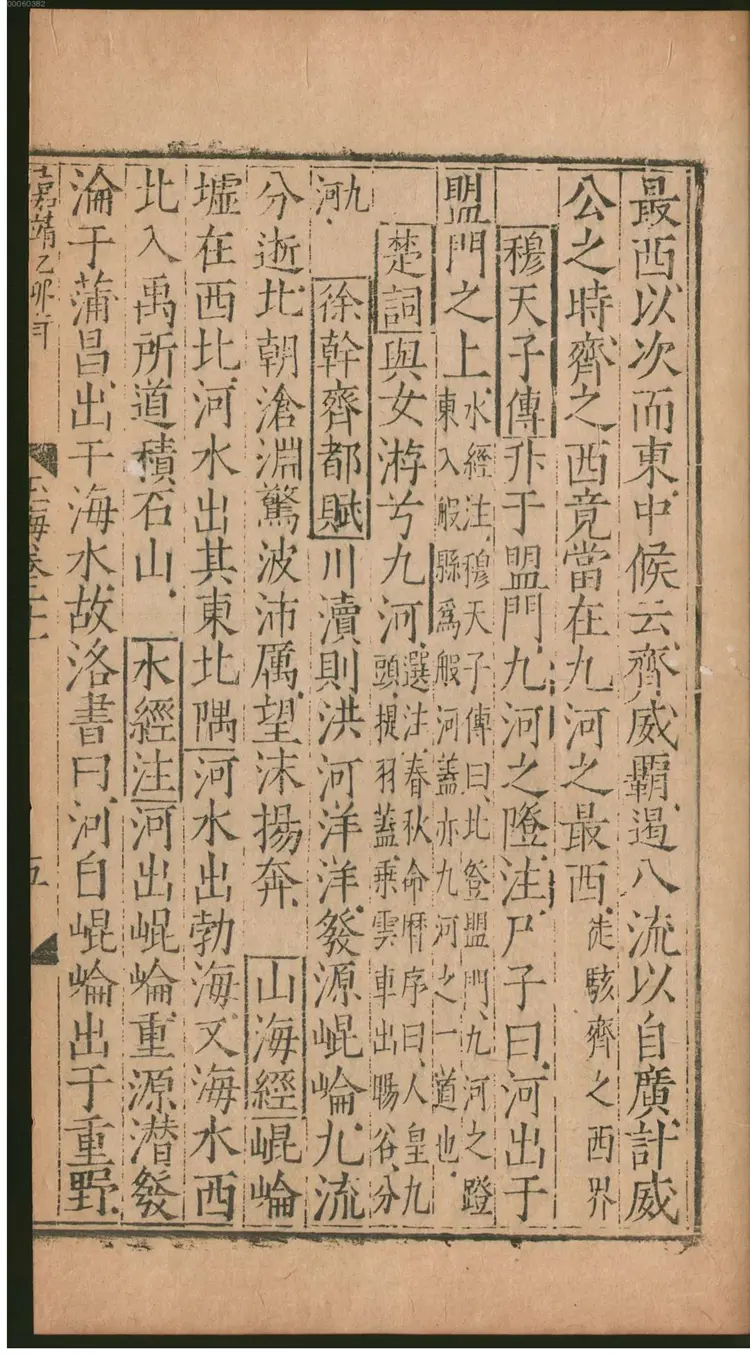 00060382
最西以次而東中候云齊威霸遏八流以自廣計威
公之時齊之西竟當在九河之最西徒駭齊之西界
穆天子傳升于盟門九河之隥注尸子曰河出于
盟門之上水經注穆天子傳曰北登盟門九河之隥
東入般縣爲般河蓋亦九河之一道也
楚詞與女游兮九河選注春秋命曆序曰人皇九
頭提羽蓋乘雲車出暘谷分
九河徐幹齊都賦川瀆則洪河洋洋發源崐崘九流
分逝北朝滄淵驚波沛厲望沫揚奔山海經崐崘
墟在西北河水出其東北隅河水出勃海又海水西
北入禹所道積石山水經注河出崐崘重源潛發
淪于蒲昌出于海水故洛書曰河自崐崘出于重野
嘉靖乙卯
玉海卷二十
五